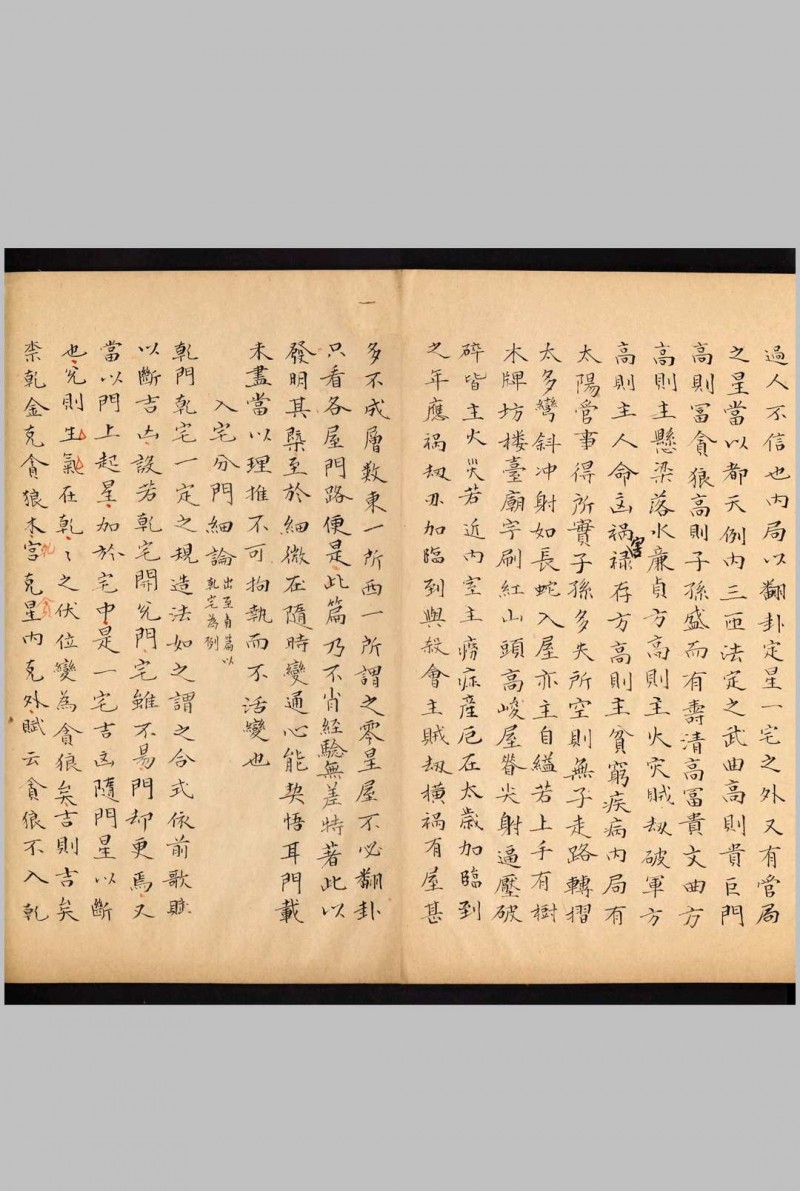 過人不信也内局以翻卦定星一宅之外又有管局
之星當以都天例内三匝法定之武曲高則貴巨門
高則冨貪狼高則子孫盛而有壽清高冨貴文曲方
高則主懸梁落水廉貞方高則主火灾賊劫破軍方
高則主人命凶禍禄存方高則主貧窮疾病内局有
害
太陽管事得所實子孫多失所空則無子走路轉摺
太多彎斜冲射如長蛇入屋亦主自縊若上手有樹
木牌坊楼臺廟宇刷紅山頭高峻屋脊尖射逼壓破
碎皆主火災若近内室主癆症産厄在太歲加臨到
之年應禍劫刃加臨到與殺會主賊劫横禍有屋甚
一
多不成層数東一所西一所謂之零星屋不必翻卦
只看各屋門路便是此篇乃不肖經驗無差特著此以
發明其槩至於細微在隨時變通心能契悟耳門載
未盡當以理推不可拘執而不活變也
入宅分門細論出至自篇以乾宅為例
乾門乾宅一定之現造法如之謂之合式依前歌賦
以斷吉凶設若乾宅開兌門宅雖不易門却更焉又
當以門上起星加於宅中是一宅吉凶隨門星以斷
也兌則生氣在乾乾之伏位變為貪狼矣吉則吉矣
柰乾金克貪狼木宮克星内克外賦云貪狼不入乾
乾
貪